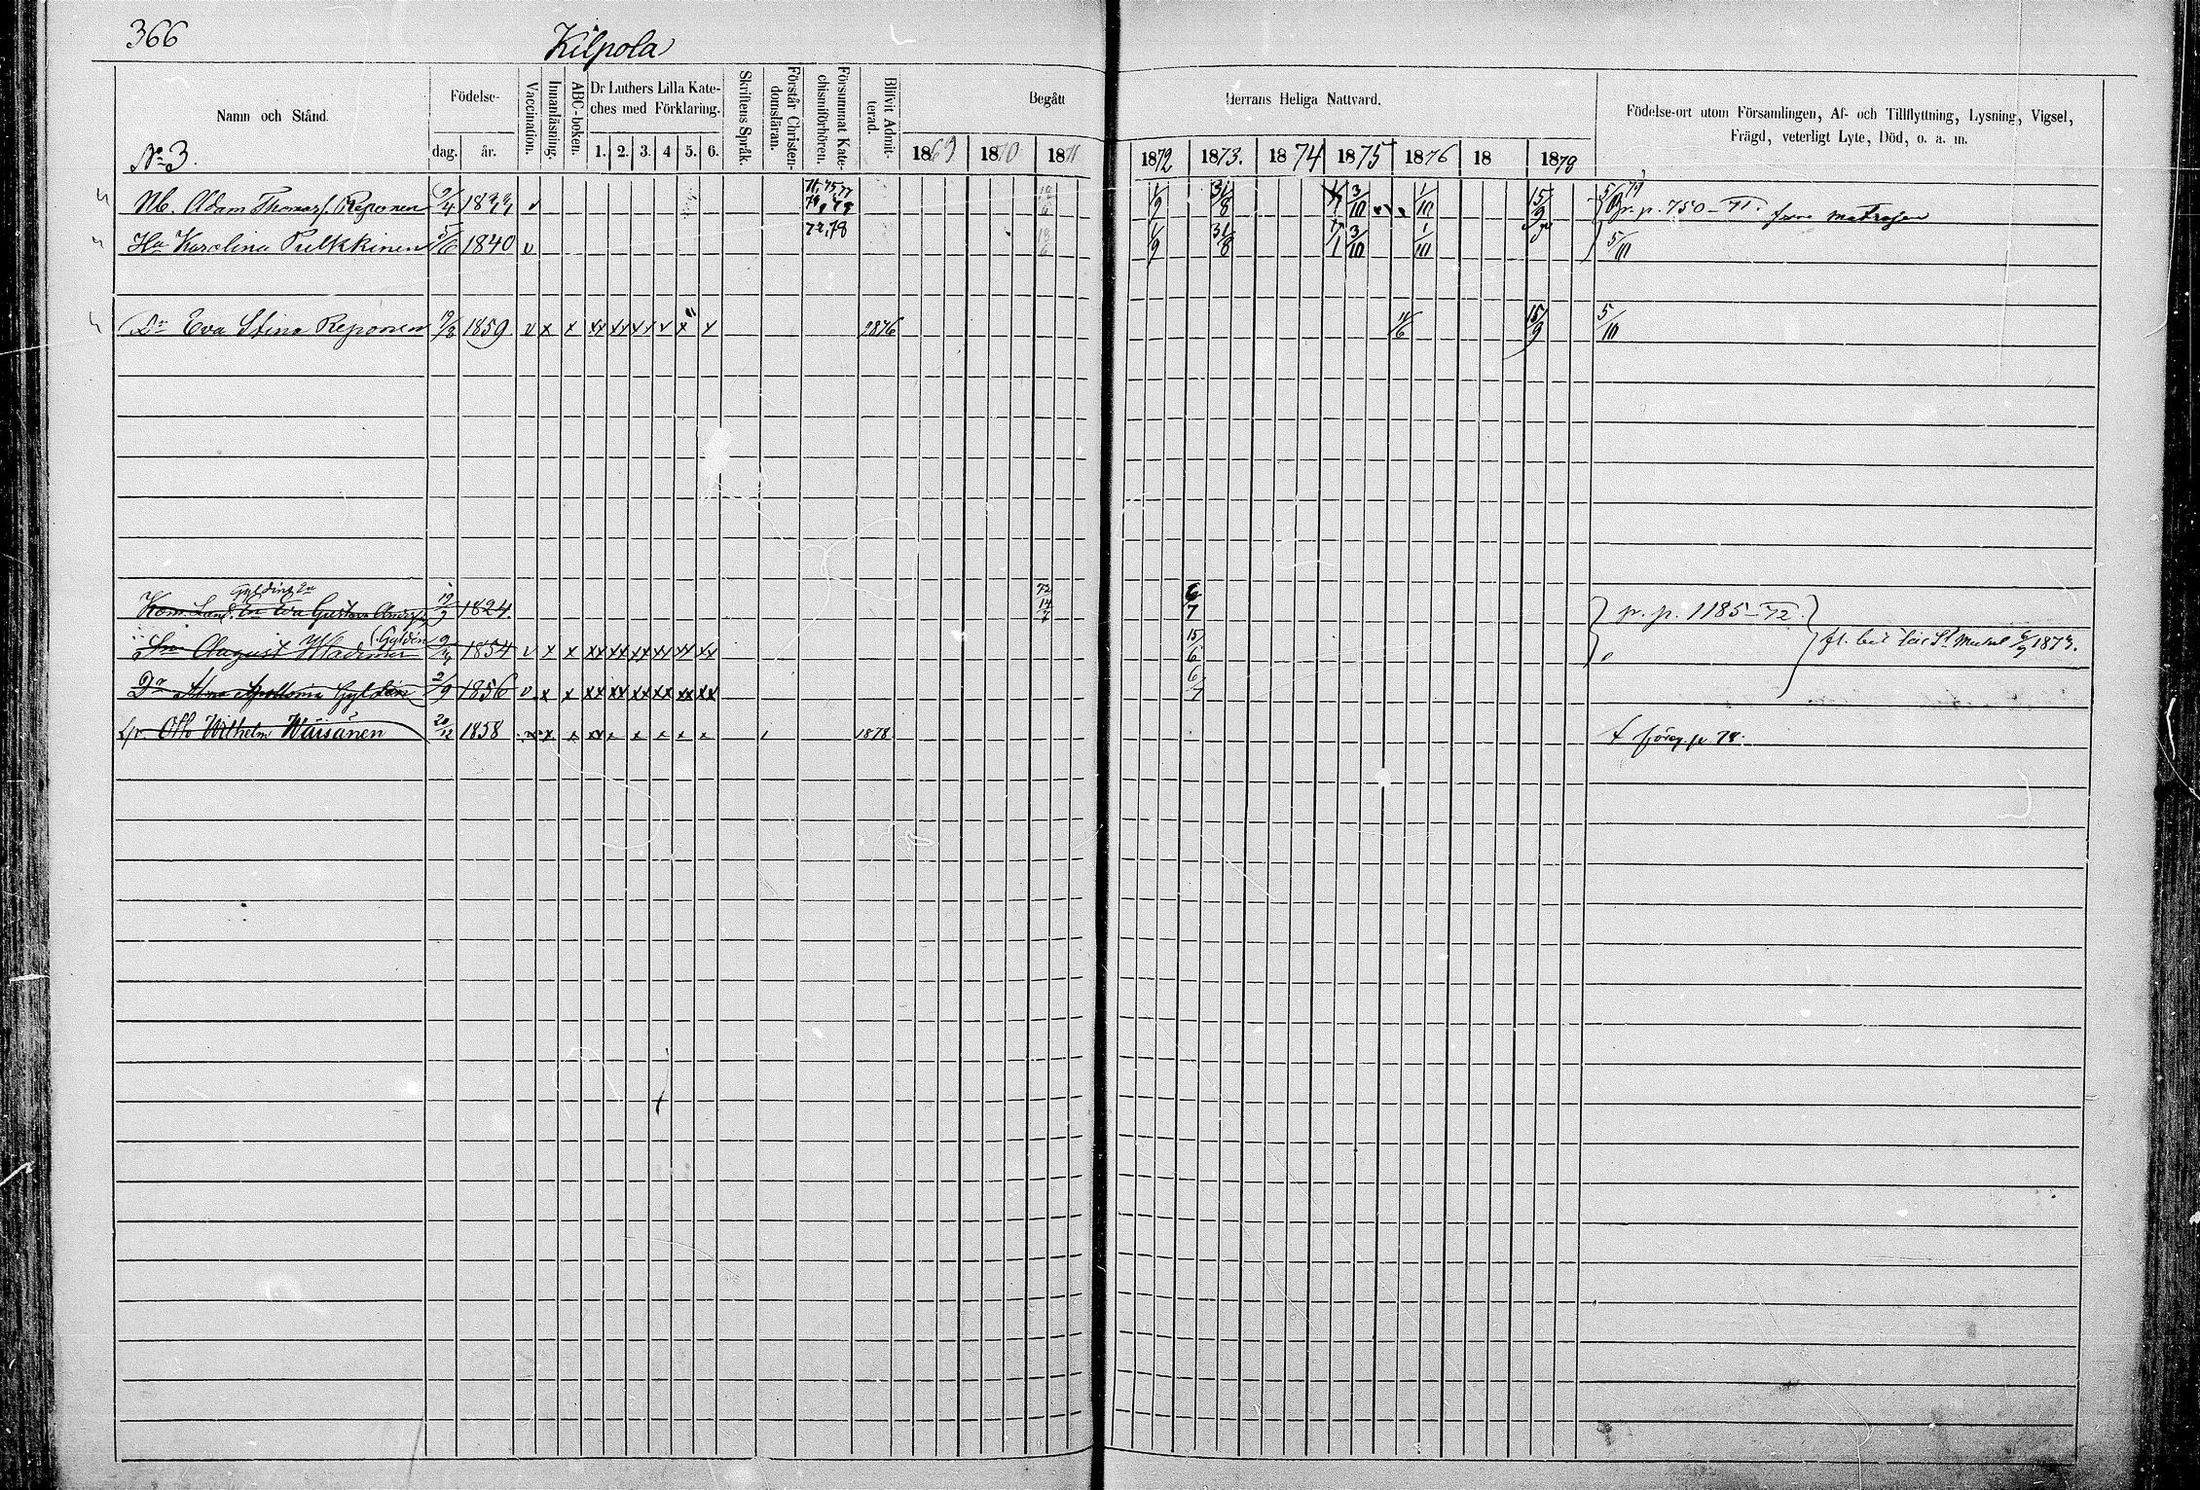 366
Kilpola
Namn och Stånd.
Födelse-
dag.
år.
Vaccination.
Innanläsning.
ABC-boken.
Dr Luthers Lilla Kate-
ches med Förklaring.
1. 2. 3. 4 5. 6.
Skriftens Språk.
Förstår Christen-
domsläran.
Försummat Kate-
chismiförhören.
Blifvit Admit-
terad.
Begått
Herrans Heliga Nattvard.
1869 1870 1871
1872 1873. 1874 1875 1876 18 1879
Födelse-ort utom Församlingen, Af- och Tillflyttning, Lysning, Vigsel,
Frägd, veterligt Lyte, Död, o. a. m.
No 3.
Adam Thomasf. Reponen 2/4 v 1/9 31/8 3/10 1/10 15/9 p. p. 750-71.
Hu Karolina Pulkkinen 5/6 1840 v 72,78 1/9 31/8 1/1 3/10 1/10 5/10
Dr Eva Stina Reponen 1859 v x x xx xx xx x x x 1876 11/6 15/9 5/10
Eva Gustava 19/9 1824. 14/7 6/7 p. p. 1185-72
August Wladimir Gyldén 1854 v x x xx xx xx xx xx xx 15/6 1873.
Dr Apollonia Gyldén 2/9 1856 v x x xx xx xx xx xx xx 6/7
Otto Wilhelm Wäisänen 20/12 1858 x x xx x x x x x 1878